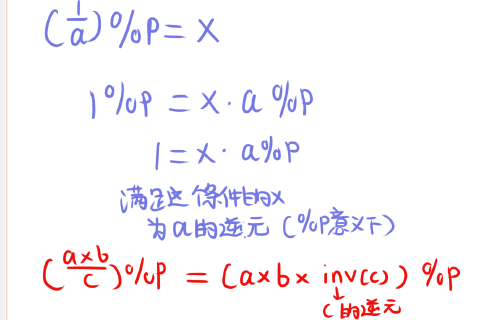 (1/a)%p = x
1%p = x · a%p
1 = x · a%p
满足这条件的x
为a的逆元 (%p意义下)
(a×b/c)%p = (a×b× inv(c)) %p
↓
c的逆元